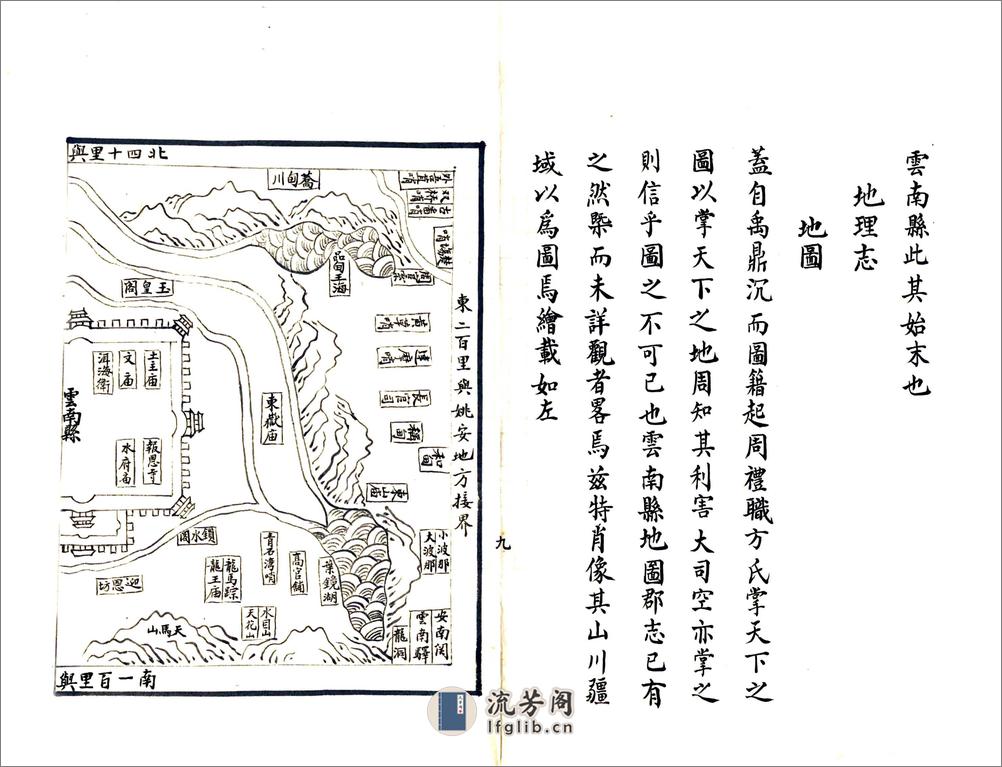 雲南縣此其始末也
地理志
地圖
蓋自禹鼎沉而圖籍起周禮職方氏掌天下之
圖以掌天下之地周知其利害大司空亦掌之
則信乎圖之不可已也雲南縣地圖郡志已有
之然槩而未詳觀者畧焉茲特肖像其山川疆
域以爲圖焉繪載如左
九
北四十里與
東二百里與姚安地方接界
南一百里與
蕎甸川
品甸王海
玉皇閣
土主庙
文庙
洱海衛
雲南縣
報恩寺
水府庙
東嶽庙
和甸
東山庙
小波那
大波那
鎖水閣
青石湾哨
高官鋪
葉鏡湖
龍馬踪
龍王庙
迎恩坊
水目山
天花山
天馬山
安南関
雲南驛
龍洞
流芳阁
lfglib.cn